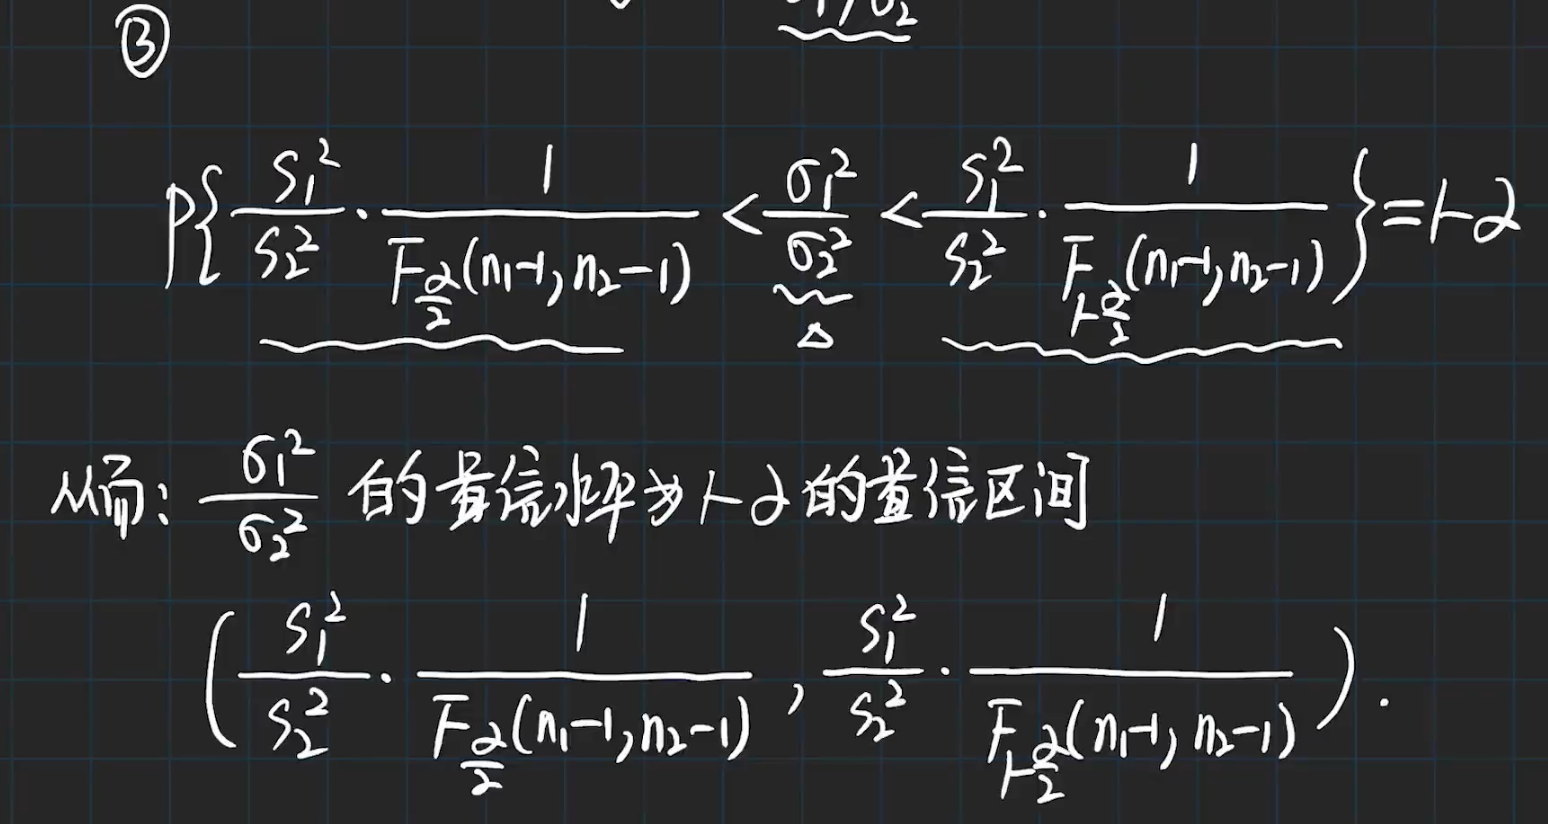 ③
P{ S₁²/S₂² · 1/F_{α/2}(n₁-1, n₂-1) < σ₁²/σ₂² < S₁²/S₂² · 1/F_{1-α/2}(n₁-1, n₂-1) } = 1-α
从而: σ₁²/σ₂² 的置信水平为1-α的置信区间
( S₁²/S₂² · 1/F_{α/2}(n₁-1, n₂-1) , S₁²/S₂² · 1/F_{1-α/2}(n₁-1, n₂-1) ).